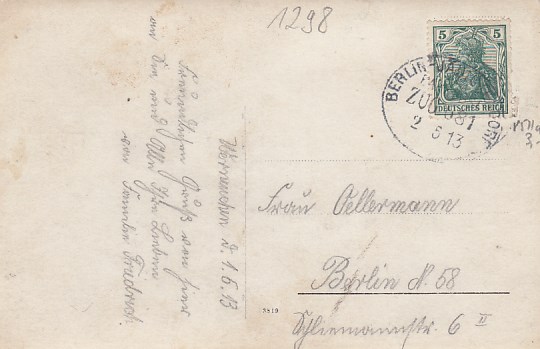 1298
5 5
DEUTSCHES REICH
BERLIN
ZUG 981
2 6 13
Werneuchen d. 1.6.13
Freundlichen Gruß von hier
an Sie und Alle Ihre Lieben
von Familie Friedrich.
Frau Oellermann
Berlin N. 58
Schliemannstr. 6 II
3819